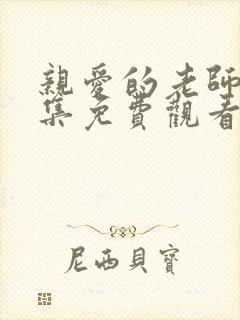 親愛的老師
集免費觀看
尼西貝寶